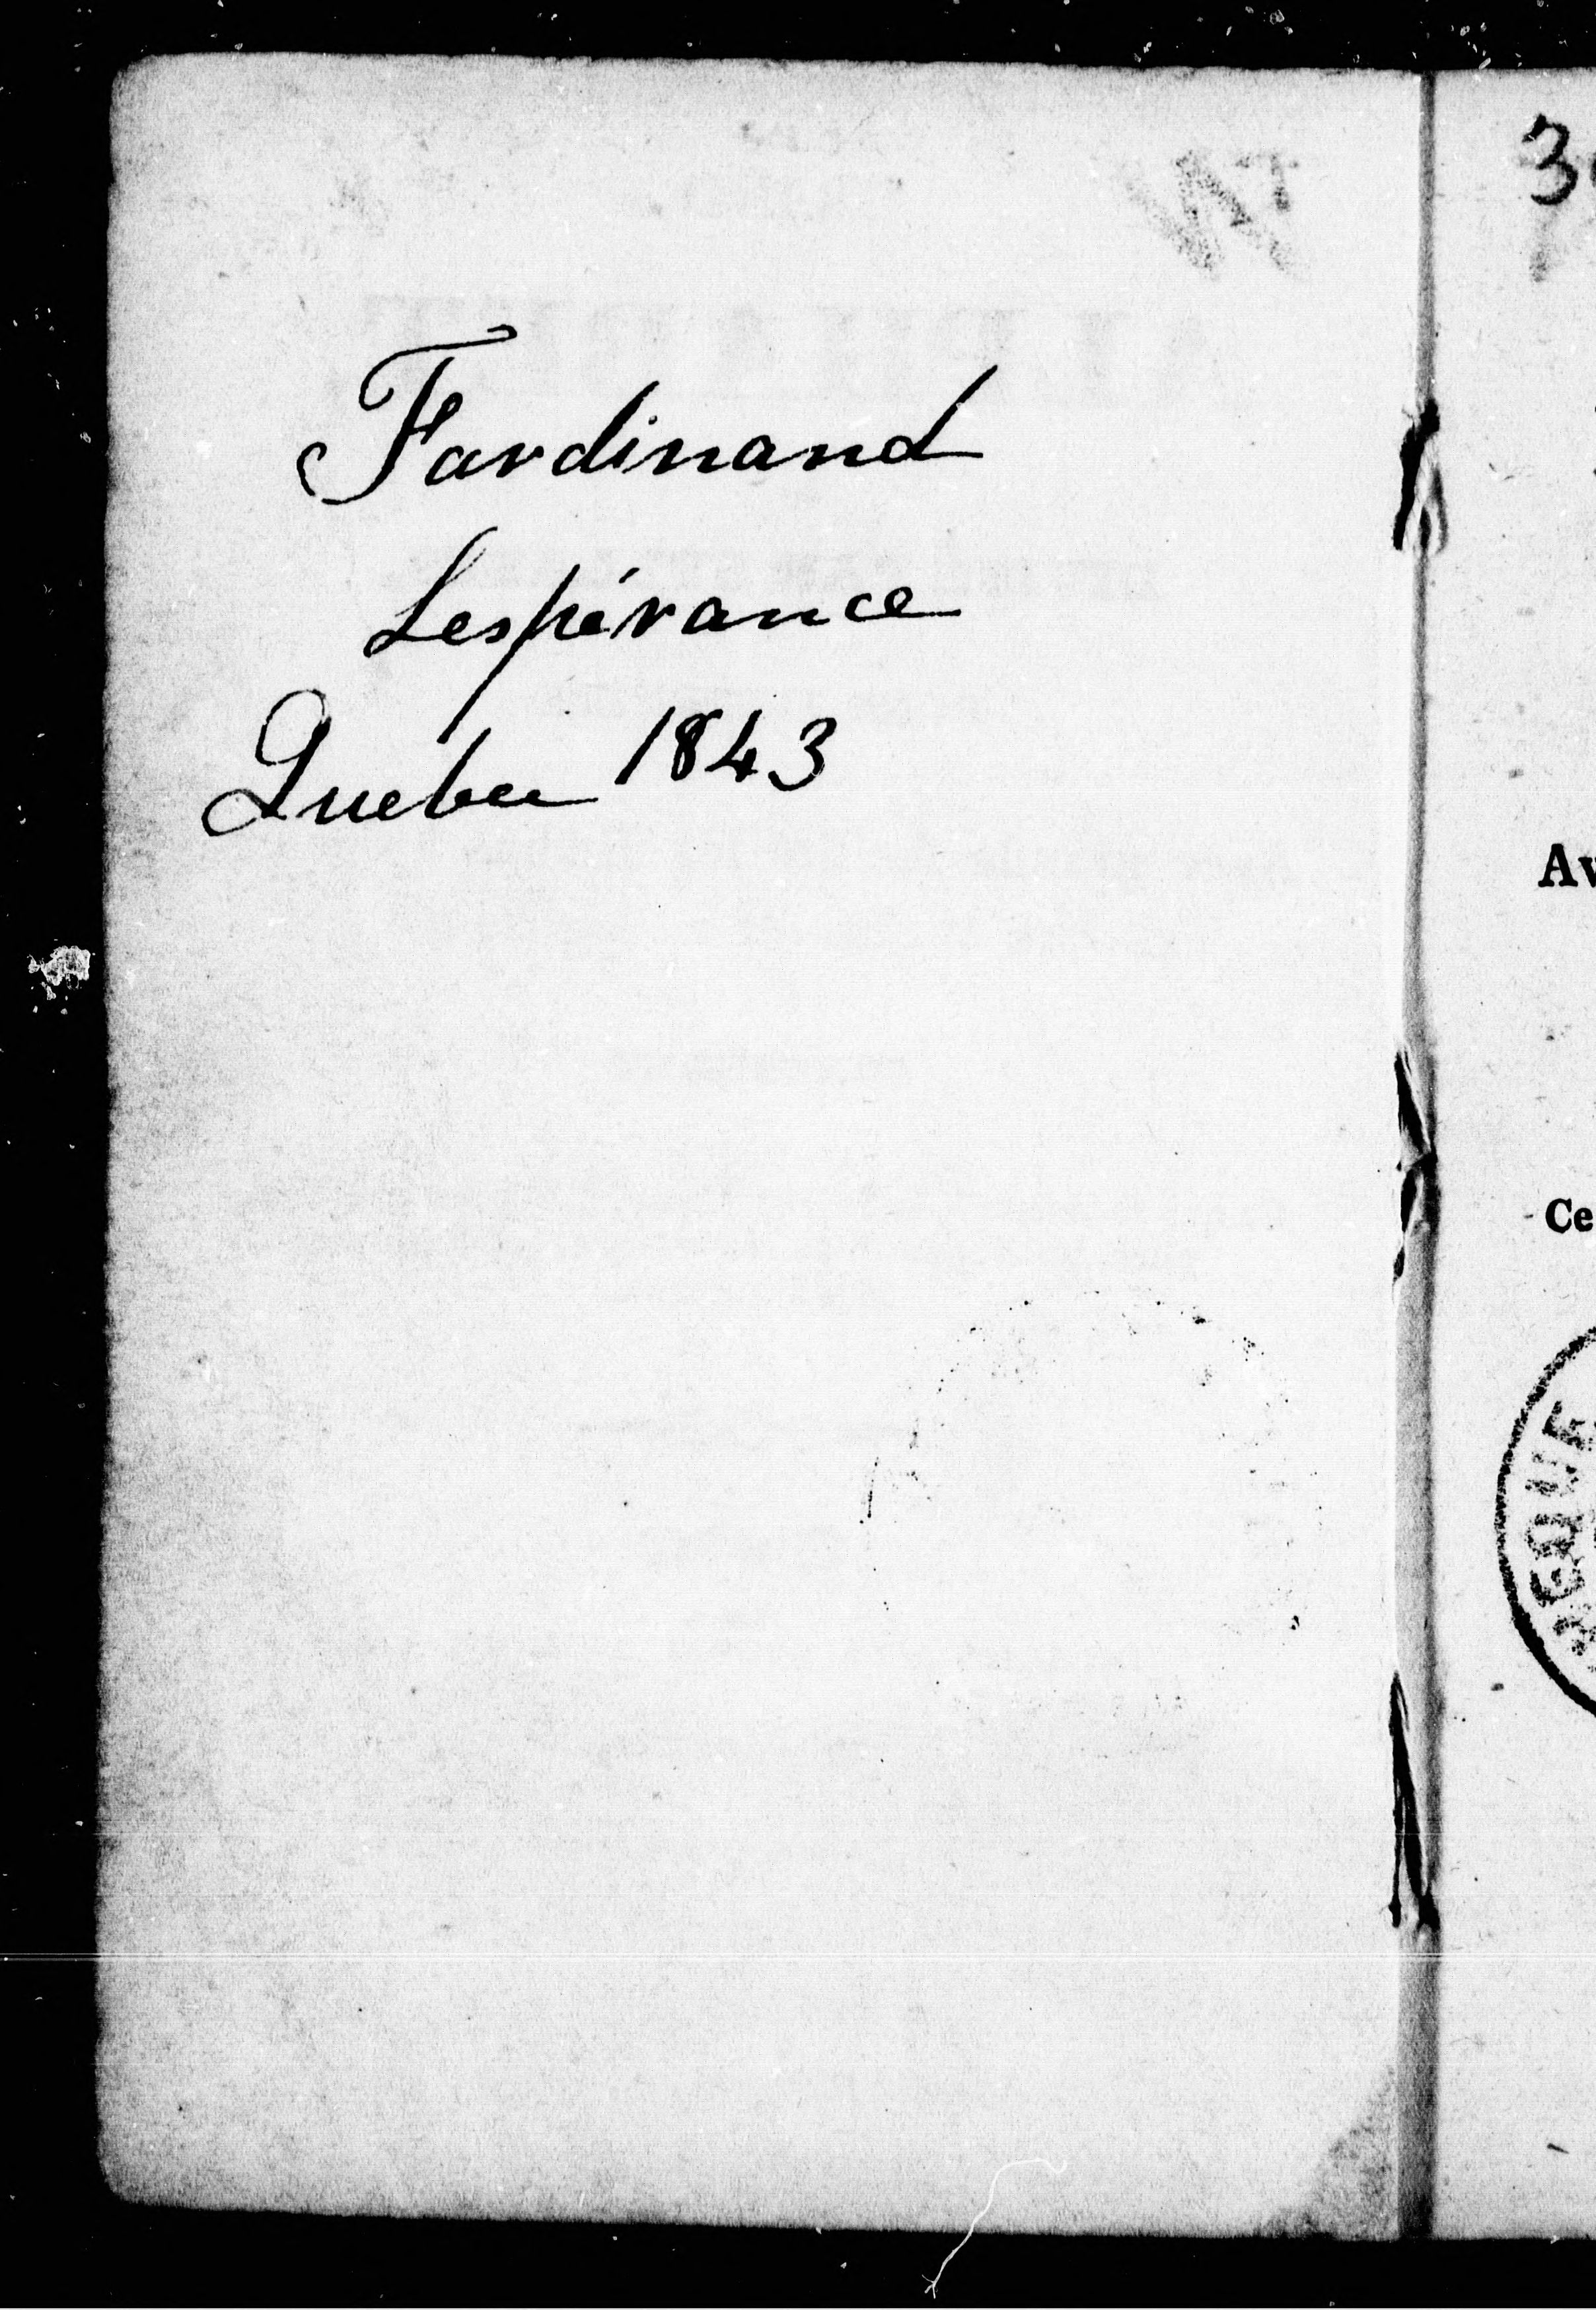 Fardinand
Lespérance
Quebec 1843
Av
Ce